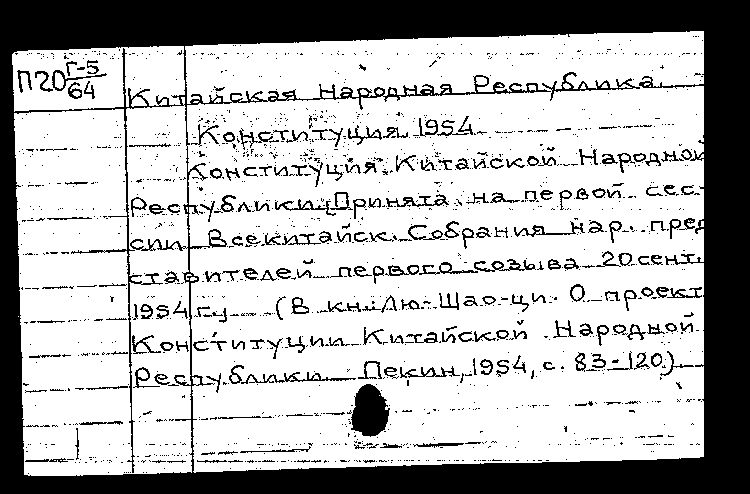 П20 Г-5/64
Китайская Народная Республика.
Конституция. 1954
Конституция Китайской Народной
Республики. [Принята на первой сес-
сии Всекитайск. Собрания нар. пред
ставителей первого созыва 20 сент.
1954 г.] (В кн.: Лю-Шао-ци. О проект
Конституции Китайской Народной
Республики. Пекин, 1954, с. 83-120.)